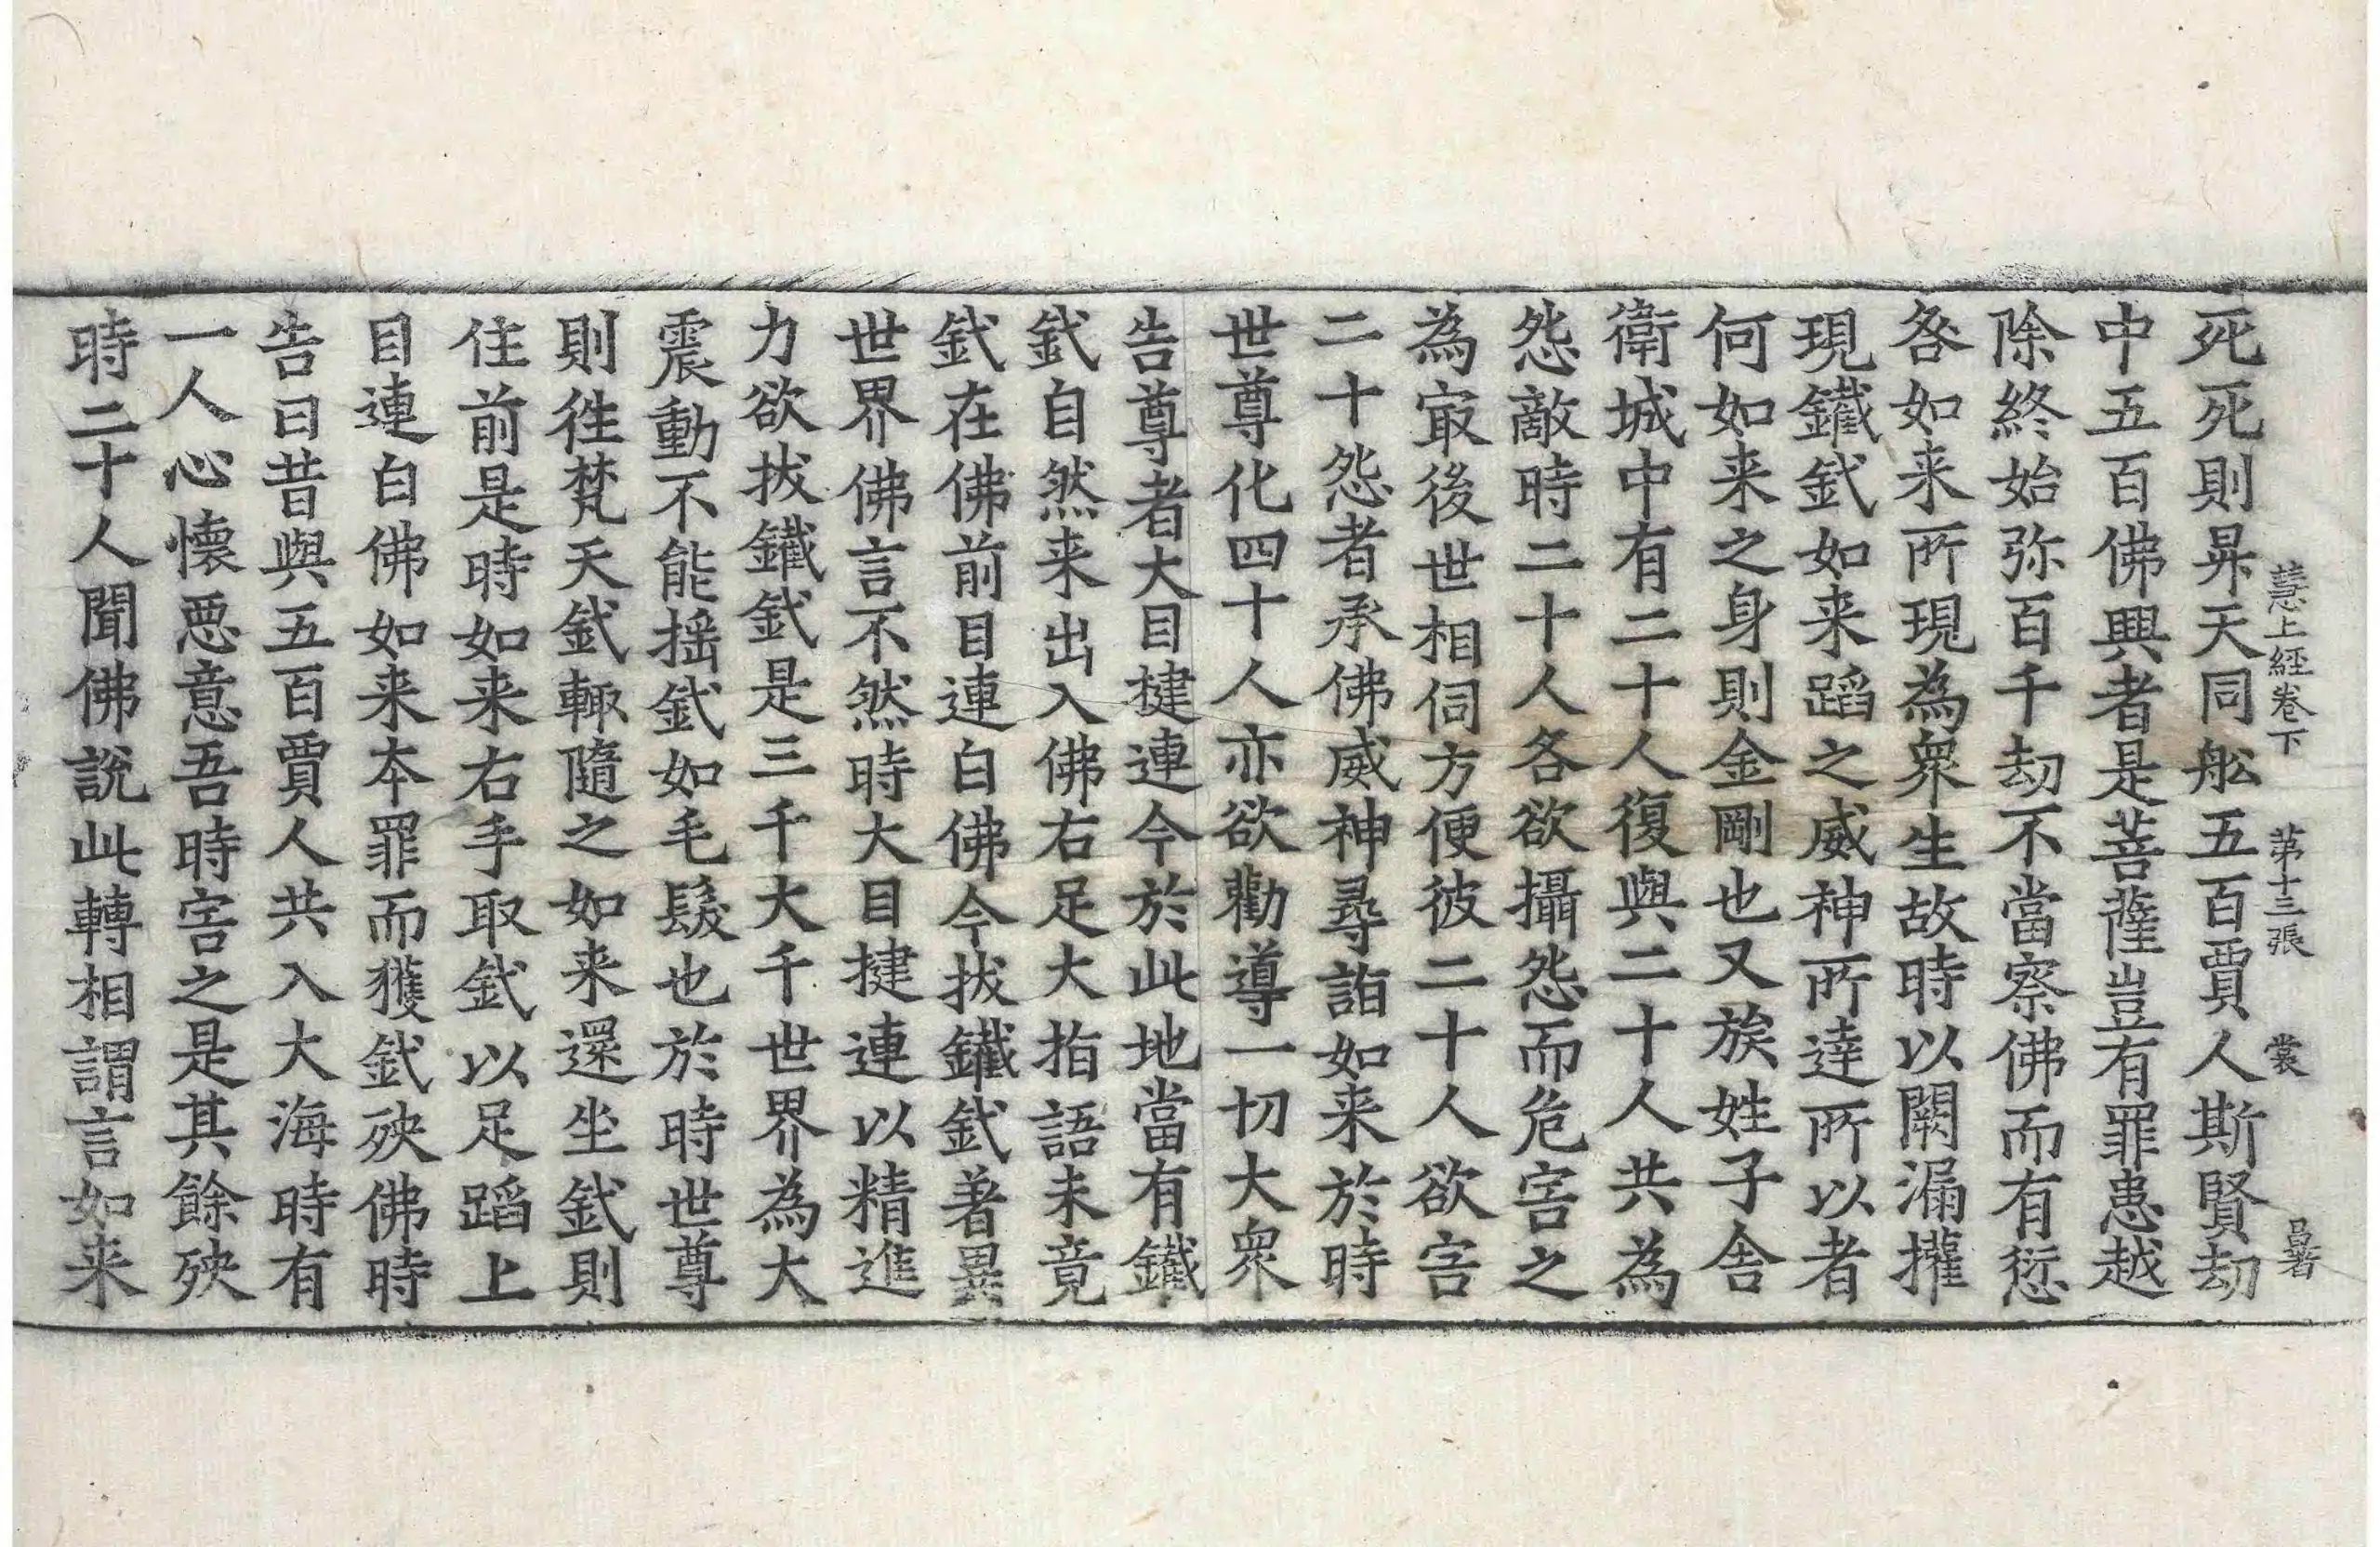 慧上經卷下 苐十三張 裳 昌若
死死則昇天同舩五百賈人斯賢劫
中五百佛興者是菩薩豈有罪恚越
除終始弥百千劫不當察佛而有愆
咎如来所現為衆生故時以闕漏攉
現鐵釴如来蹈之威神所達所以者
何如来之身則金剛也又族姓子舎
衛城中有二十人復與二十人共為
怨敵時二十人各欲攝怨而危害之
為冣後世相伺方便彼二十人欲害
二十怨者承佛威神尋詣如来於時
世尊化四十人亦欲勸導一切大衆
告尊者大目揵連今於此地當有鐵
釴自然来出入佛右足大指語未竟
釴在佛前目連白佛今拔鐵釴著異
世界佛言不然時大目揵連以精進
力欲拔鐵釴是三千大千世界為大
震動不能揺釴如毛髮也於時世尊
則徃梵天釴輙隨之如来還坐釴則
住前是時如来右手取釴以足蹈上
目連白佛如来本罪而獲釴殃佛時
告曰昔與五百賈人共入大海時有
一人心懷惡意吾時害之是其餘殃
時二十人聞佛說此轉相謂言如来